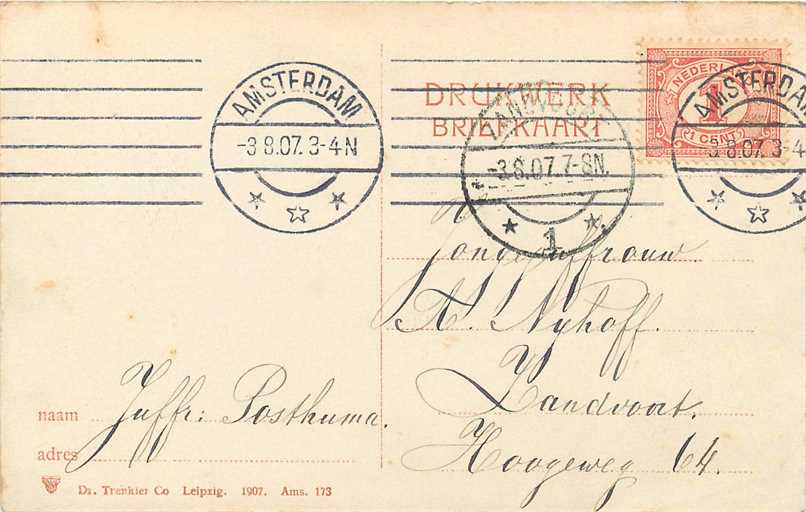 AMSTERDAM
-3 8.07. 3-4N
DRUKWERK
BRIEFKAART
-3.8.07. 7-8N.
1
NEDERL
1
1 CENT
AMSTERDAM
-3 8.07. 3-4
Jongejuffrouw
A. Nyhoff.
Zandvoort.
Hoogeweg 64.
naam Juffr: Posthuma.
adres
Dr. Trenkler Co Leipzig. 1907. Ams. 173